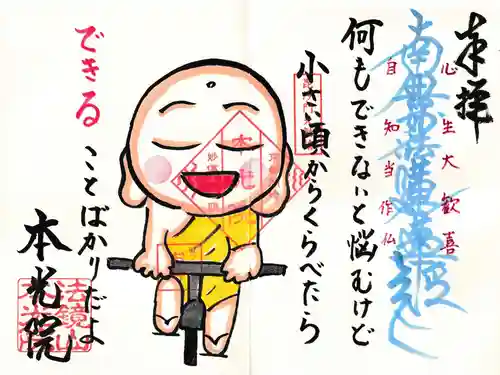 奉拝
心生大歓喜
南無妙法蓮華経
自知当作仏
何もできないと悩むけど
小さい頃からくらべたら
できる
ことばかりだよ
本光院
法鏡山